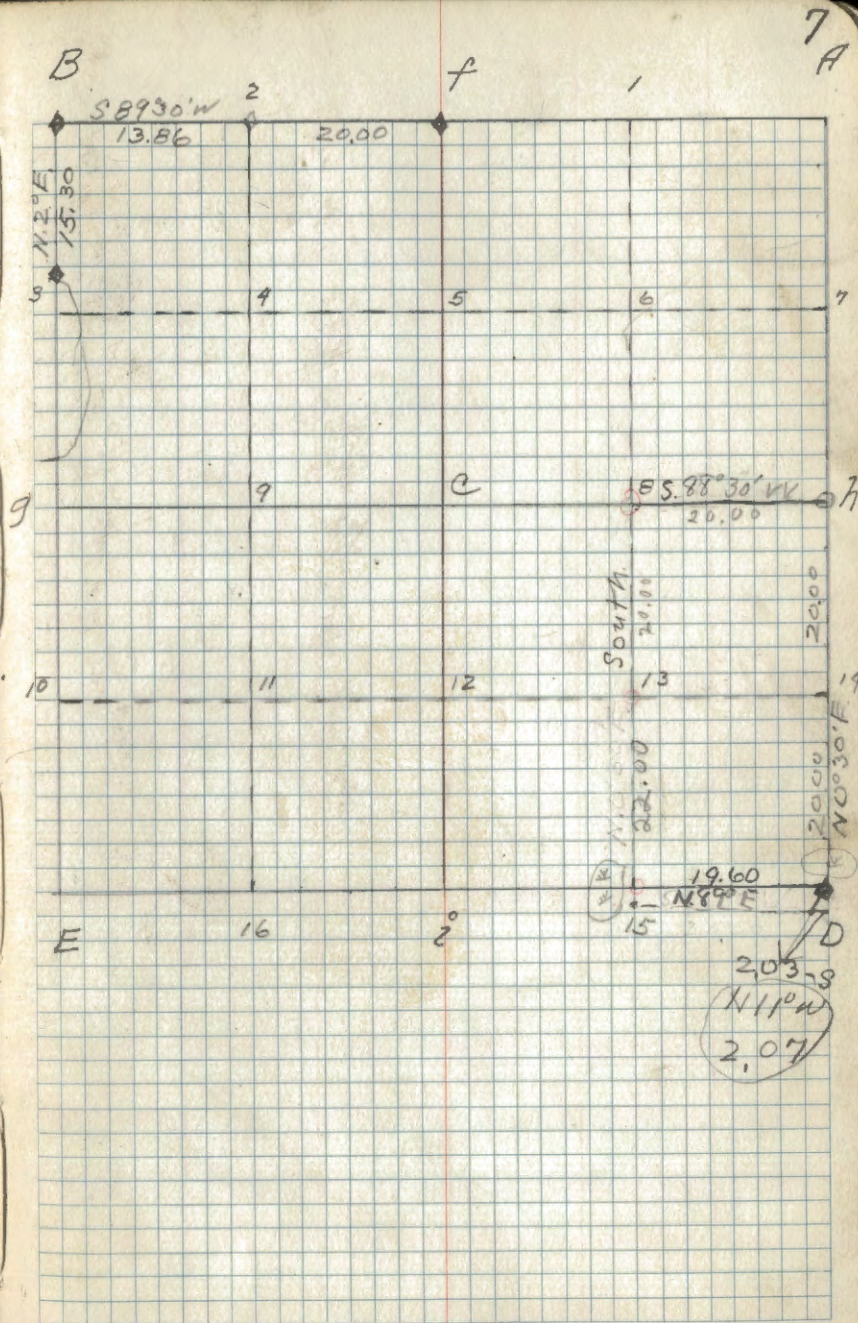 7
B f 1 A
S 89 30' W 2
13.86 20.00
N. 2° E.
15.30
3 4 5 6 7
g 9 C 8 S. 88° 30' W h
20.00
South
20.00
20.00
10 11 12 13 14
22.00
20.00
N 0° 30' E
**
*
19.60
N. 89° E
E 16 i 15 D
2.03 S
N 11° W
2.07